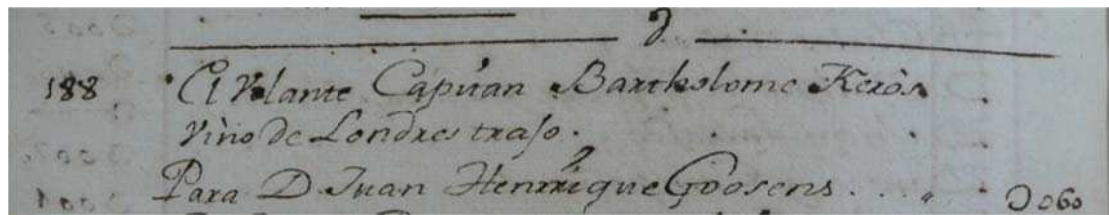 188 El Volante Capitan Bartholome Keròs
Vino de Londres trajo.
Para D Juan Henrrique Goosens